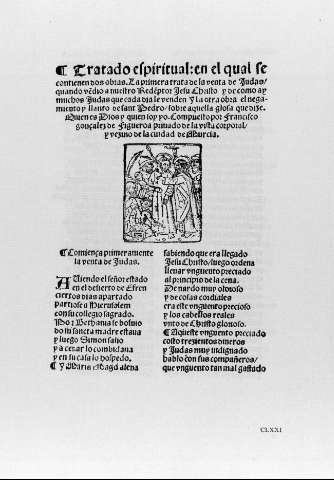 ¶ Tratado espiritual: en el qual se
contienen dos obras. La primera trata de la venta de Judas/
quando vẽdio a nuestro Redẽptor Jesu Christo y de como ay
muchos Judas que cada dia le venden Y la otra obra el nega-
miento y llanto de sant Pedro/ sobre aquella glosa que dize.
Quien es Dios y quien soy yo. Compuesto por Francisco
gonçalez de Figueroa priuado de la vista corporal/
y vezino de la ciudad de Murcia.
¶ Comiença primeramente
la venta de Judas.
AViendo el señor estado
en el desierto de Efren
ciertos dias apartado
partiose a Hierusalem
con su collegio sagrado.
Por Bethania se boluio
do su sancta madre estaua
y luego Simon salio
y a cenar lo combidaua
y en su casa lo hospedo.
¶ Y Maria Magdalena
sabiendo que era llegado
Jesu Christo/ luego ordena
lleuar vnguento preciado
al principio de la cena.
De nardo muy oloroso
y de cosas cordiales
era este vnguento precioso
y los cabellos reales
vnto de Christo glorioso.
¶ Aqueste vnguento preciado
costo trezientos dineros
y Judas muy indignado
hablo con sus compañeros/
que vnguento tan mal gastado
CLXXI